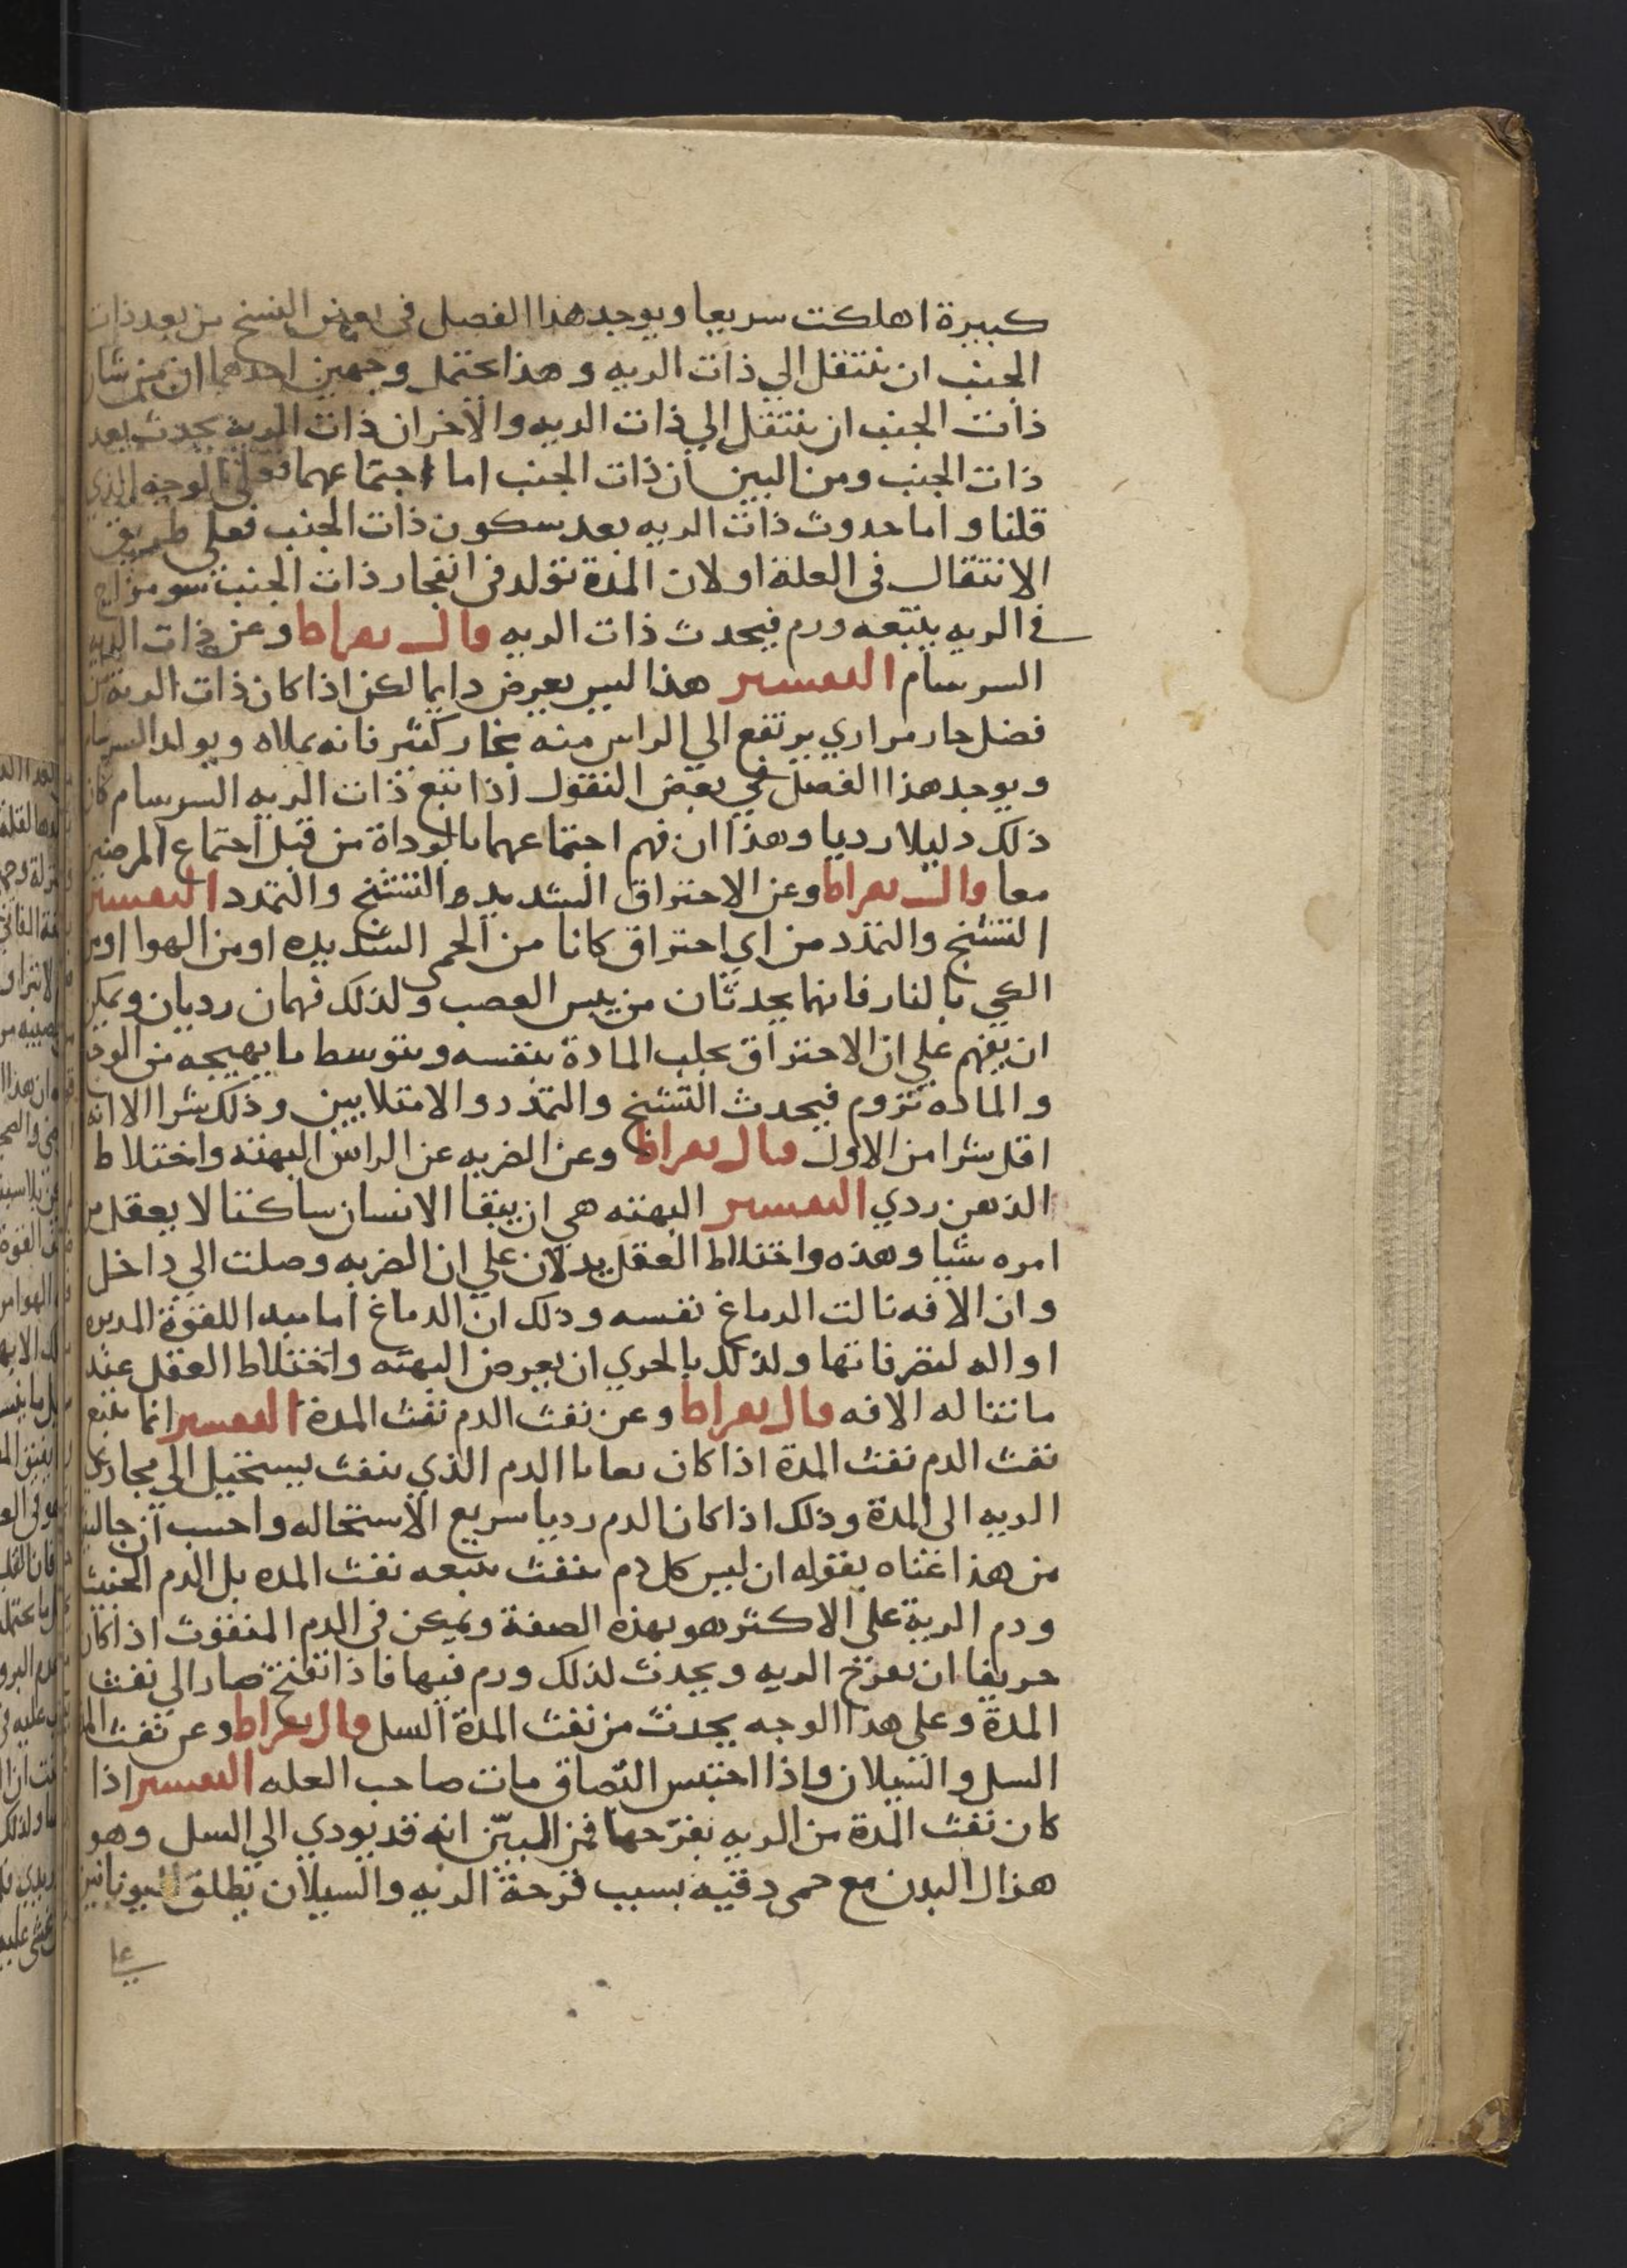 كبيرة اهلكت سريعا ويوجد هذا الفصل في بعض النسخ من بعد ذات
الجنب ان ينتقل الي ذات الريه وهذا يحتمل وجهين احدهما ان من شان
ذات الجنب ان ينتقل الي ذات الريه والاخر ان ذات الريه يحدث بعد
ذات الجنب ومن البين ان ذات الجنب اما اجتماعهما فعلي الوجه الذي
قلنا واما حدوث ذات الريه بعد سكون ذات الجنب فعلي طريق
الانتقال في العلة او لان المدة تولد في انفجار ذات الجنب سو مزاج
في الريه يتبعه ورم فيحدث ذات الريه قال بقراط وعن ذات الريه
السرسام التفسير هذا ليس يعرض دايما لكن اذا كان ذات الرية من
فضل حار مراري يرتفع الي الراس منه بخار كثير فانه يملاه ويولد السرسام
ويوجد هذا الفصل في بعض النقول اذا تبع ذات الريه السرسام كان
ذلك دليلا رديا وهذا ان فهم اجتماعهما بالوداة من قبل اجتماع المرضين
معا قال بقراط وعن الاحتراق الشديد والتشنج والتمدد التفسير
التشنج والتمدد من اي احتراق كانا من الحمي الشديده او من الهوا او من
الكي بالنار فانهما يحدثان من يبس العصب ولذلك فهما ن رديان ويمكن
ان يفهم علي ان الاحتراق يجلب المادة بنفسه وبتوسط ما يهيجه من الوجع
والماده تزوم فيحدث التشنج والتمدد والامتلايين وذلك شرا الا انه
اقل شرا من الاول قال بقراط وعن الضربه عن الراس البهته واختلاط
الذهن ردي التفسير البهته هي ان يبقا الانسان ساكتا لا يعقل من
امره شيا وهذه واختلاط العقل يدلان علي ان الضربه وصلت الي داخل
وان الافه نالت الدماغ نفسه وذلك ان الدماغ اما مبدا للقوة المدبره
او اله لتصرفاتها ولذلك بالحري ان يعرض البهته واختلاط العقل عند
ما تناله الافه قال بقراط وعن نفث الدم نفث المدة التفسير انما يتبع
نفث الدم نفث المدة اذا كان بقايا الدم الذي ينفث يستحيل الي مجاري
الريه الي المدة وذلك اذا كان الدم رديا سريع الاستحاله واحسب ان جالينوس
من هذا عناه بقوله ان ليس كل دم ينفث يتبعه نفث المده بل الدم الخبيث
ودم الرية علي الاكثر هو بهذه الصفة ويمكن في الدم المنفوث اذا كان
حريفا ان يقرح الريه ويحدث لذلك ورم فيها فاذا انفتح صار الي نفث
المدة وعلي هذا الوجه يحدث من نفث المدة السل قال بقراط وعن نفث المدة
السل والسيلان واذا احتبس البصاق مات صاحب العله التفسير اذا
كان نفث المدة من الريه بقرحها فمن المبين انه قد يودي الي السل وهو
هذال البدن مع حمي دقيه بسبب قرحة الريه والسيلان يطلق اليونانين
علي